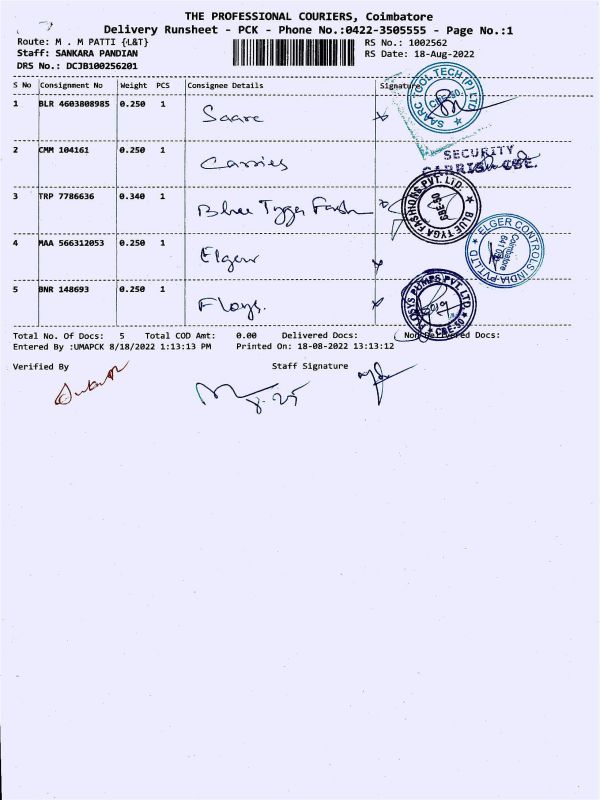 THE PROFESSIONAL COURIERS, Coimbatore
Delivery Runsheet - PCK - Phone No.:0422-3505555 - Page No.:1
Route: M . M PATTI {L&T} RS No.: 1002562
Staff: SANKARA PANDIAN RS Date: 18-Aug-2022
DRS No.: DCJB100256201
S No Consignment No Weight PCS Consignee Details Signature
1 BLR 4603808985 0.250 1 Saarc
SAARC TOOL TECH (P) LTD CBE-50.
2 CMM 104161 0.250 1 Carries
SECURITY
CBE.
3 TRP 7786636 0.340 1 Blue Tyger Fash
BLUE TYGA FASHIONS PVT. LTD. CBE-50
4 MAA 566312053 0.250 1 Elger
ELGER CONTROLS INDIA PVT LTD Coimbatore
5 BNR 148693 0.250 1 Floys.
PUMPS PVT. LTD. CBE-50
Total No. Of Docs: 5 Total COD Amt: 0.00 Delivered Docs: Non Delivered Docs:
Entered By :UMAPCK 8/18/2022 1:13:13 PM Printed On: 18-08-2022 13:13:12
Verified By Staff Signature